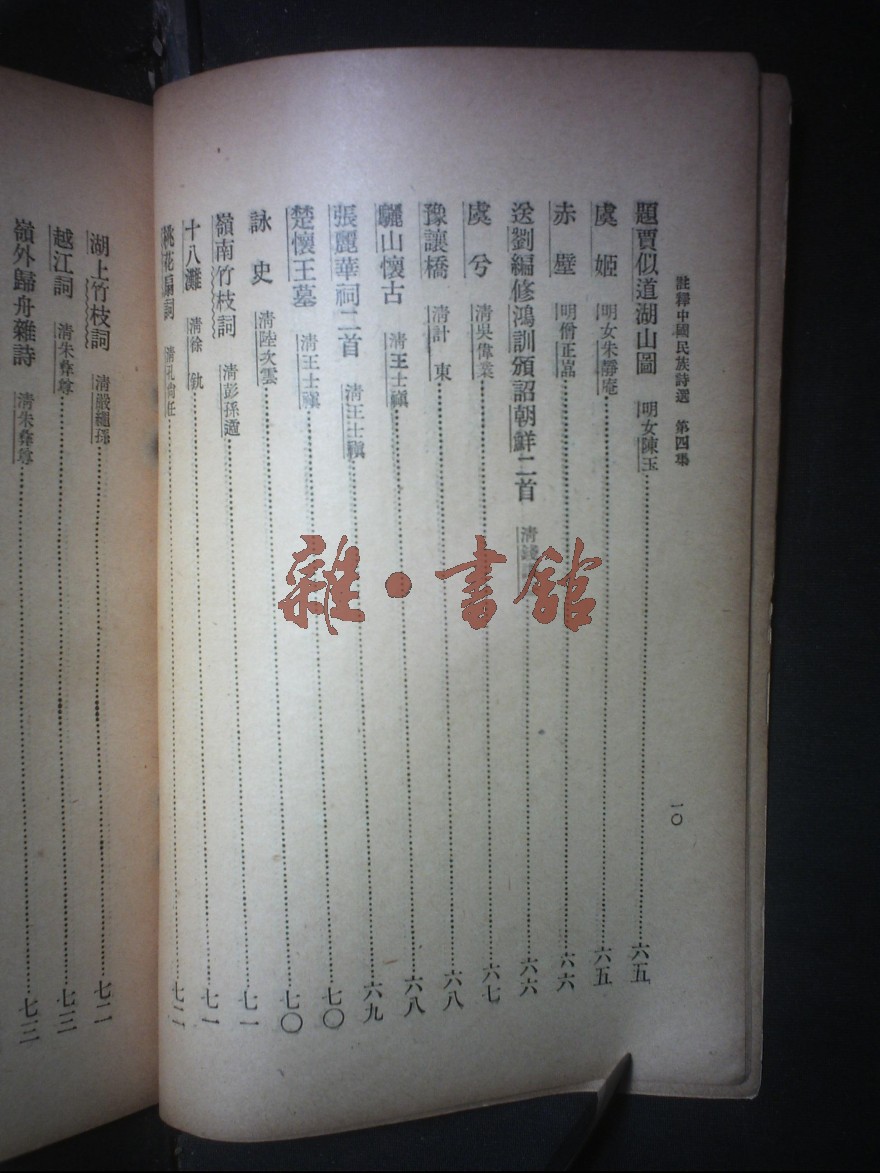 註釋中國民族詩選 第四集
一〇
題賈似道湖山圖 明女陳玉 六五
虞姬 明女朱靜庵 六五
赤壁 明僧正嵓 六六
送劉編修鴻訓頒詔朝鮮二首 清錢 六六
虞兮 清吳偉業 六七
豫讓橋 清計東 六八
驪山懷古 清王士禛 六八
張麗華祠二首 清王士禛 六九
楚懷王墓 清王士禛 七〇
詠史 清陸次雲 七〇
嶺南竹枝詞 清彭孫遹 七一
十八灘 清徐釚 七一
桃花扇詞 清孔尚任 七二
湖上竹枝詞 清嚴繩孫 七二
越江詞 清朱彝尊 七三
嶺外歸舟雜詩 清朱彝尊 七三
雜·書館